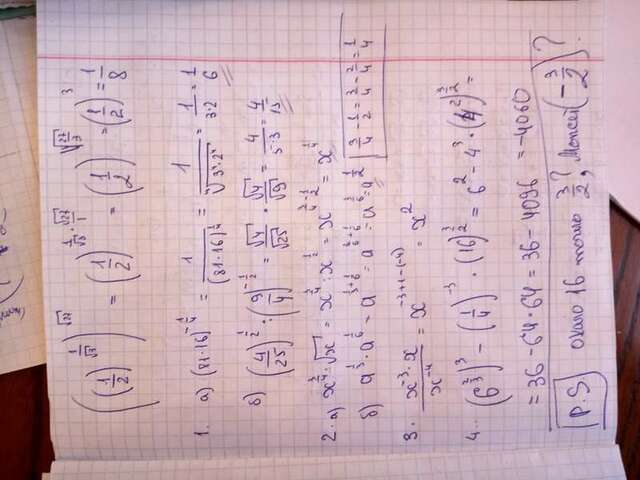 ((1/2)^(1/√3))^√27 = (1/2)^(1/√3 · √27/1) = (1/2)^(√(27/3)) = (1/2)^3 = 1/8
1. а) (81·16)^(-1/4) = 1/(81·16)^(1/4) = 1/∜(3⁴·2⁴) = 1/(3·2) = 1/6
б) (4/25)^(1/2) : (9/4)^(-1/2) = √4/√25 · √4/√9 = 4/(5·3) = 4/15
2. а) x^(3/4) : √x = x^(3/4) : x^(1/2) = x^(3/4-1/2) = x^(1/4)
3/4 - 1/2 = 3/4 - 2/4 = 1/4
б) a^(1/3) · a^(1/6) = a^(1/3+1/6) = a^(2/6+1/6) = a^(3/6) = a^(1/2)
3. (x^-3 · x)/x^-4 = x^(-3+1-(-4)) = x^2
4. (6^(2/3))^3 - (1/4)^-3 · (16)^(3/2) = 6^2 - 4^3 · (4^2)^(3/2) =
= 36 - 64·64 = 36 - 4096 = -4060
P.S около 16 точно 3/2?, Может (-3/2)?